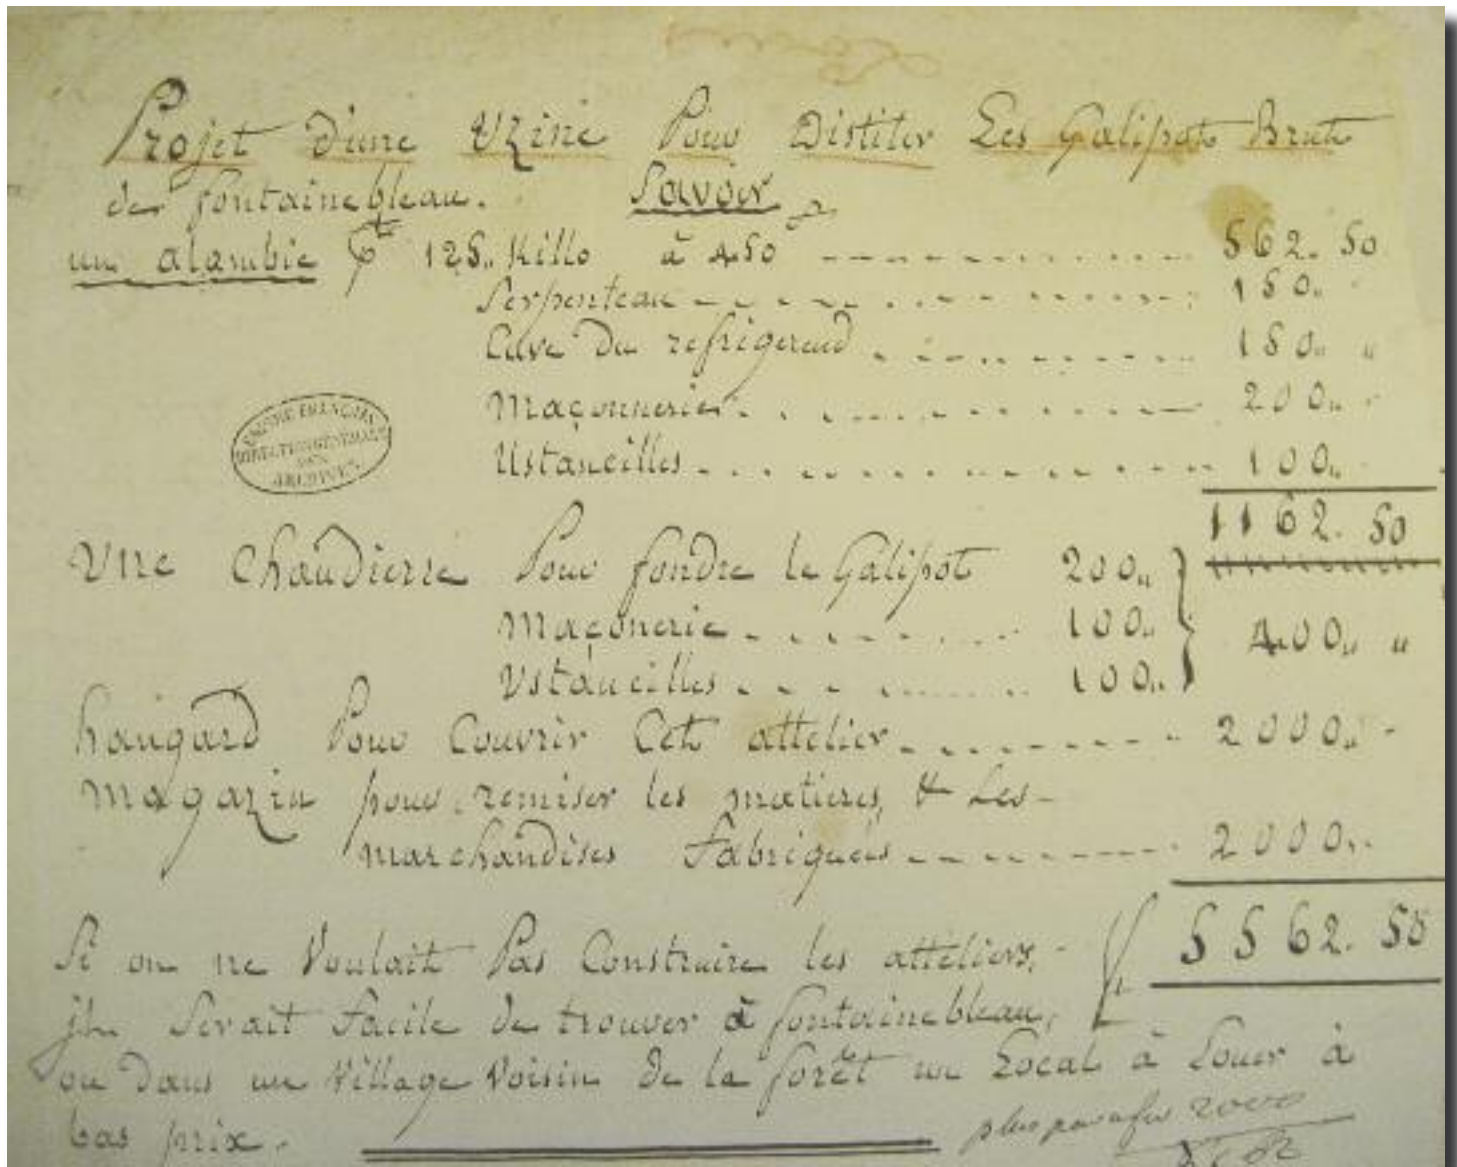 Projet d'une Uzine Pour Distiler Les Galipot Brut
de fontainebleau. Savoir
un alambic 125,, Killo à 4.50 562. 50
Serpenteau 150,,
Cuve Du refrigerend 150,, "
Maçonnerie 200,,
Ustanceilles 100,,
1162. 50
EMPIRE FRANÇAIS
DIRECTION GÉNÉRALE
DES
ARCHIVES
Une Chaudierre Pour fondre le Galipot 200,,
Maçonerie 100,, 400,, "
Ustanceilles 100,,
hangard Pour Couvrir Cet attelier 2000,,
Magazin pour remiser les matieres & Les
marchandises Fabriquées 2000,,
5562. 50
Si on ne Voulait Pas Construire les atteliers,
jl Serait Facile de trouver à fontainebleau,
ou Dans un Village Voisin de la forêt un Local à Louer à
bas prix.
plus 2000